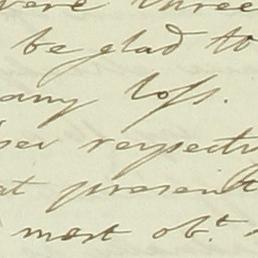 were three
be glad to
any loss.
respectf
at present
most obt.